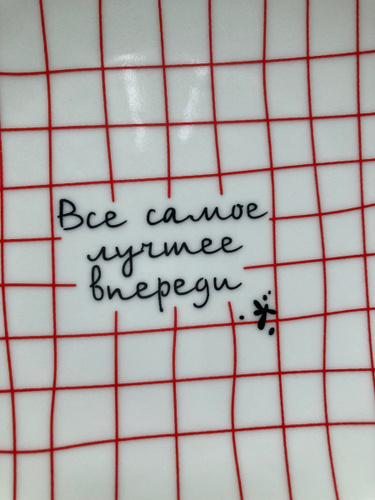 Все самое
лучшее
впереди